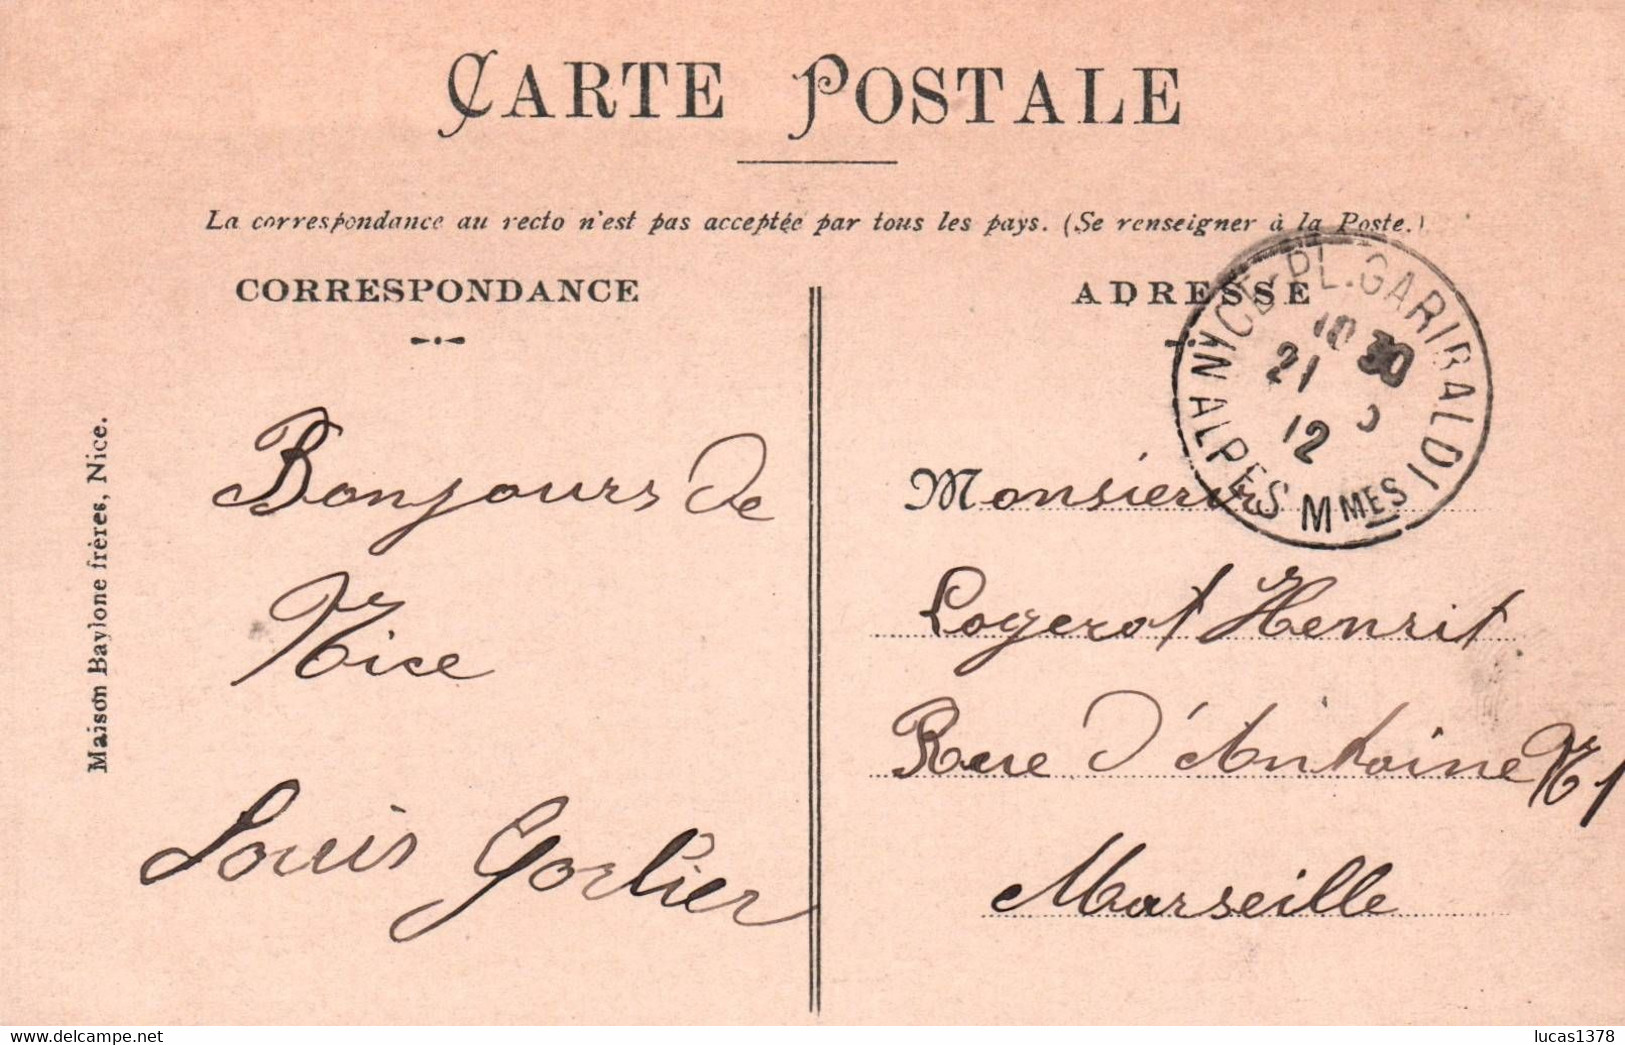 CARTE POSTALE
La correspondance au recto n'est pas acceptée par tous les pays. (Se renseigner à la Poste.)
CORRESPONDANCE
ADRESSE
NICE-PL. GARIBALDI
10 30
21
12
ALPES MMES
Maison Baylone frères, Nice.
Bonjours de
Nice
Louis Gorlier
Monsieur
Logerot Henrit
Rue D'Antoine N 1
Marseille
lucas1378